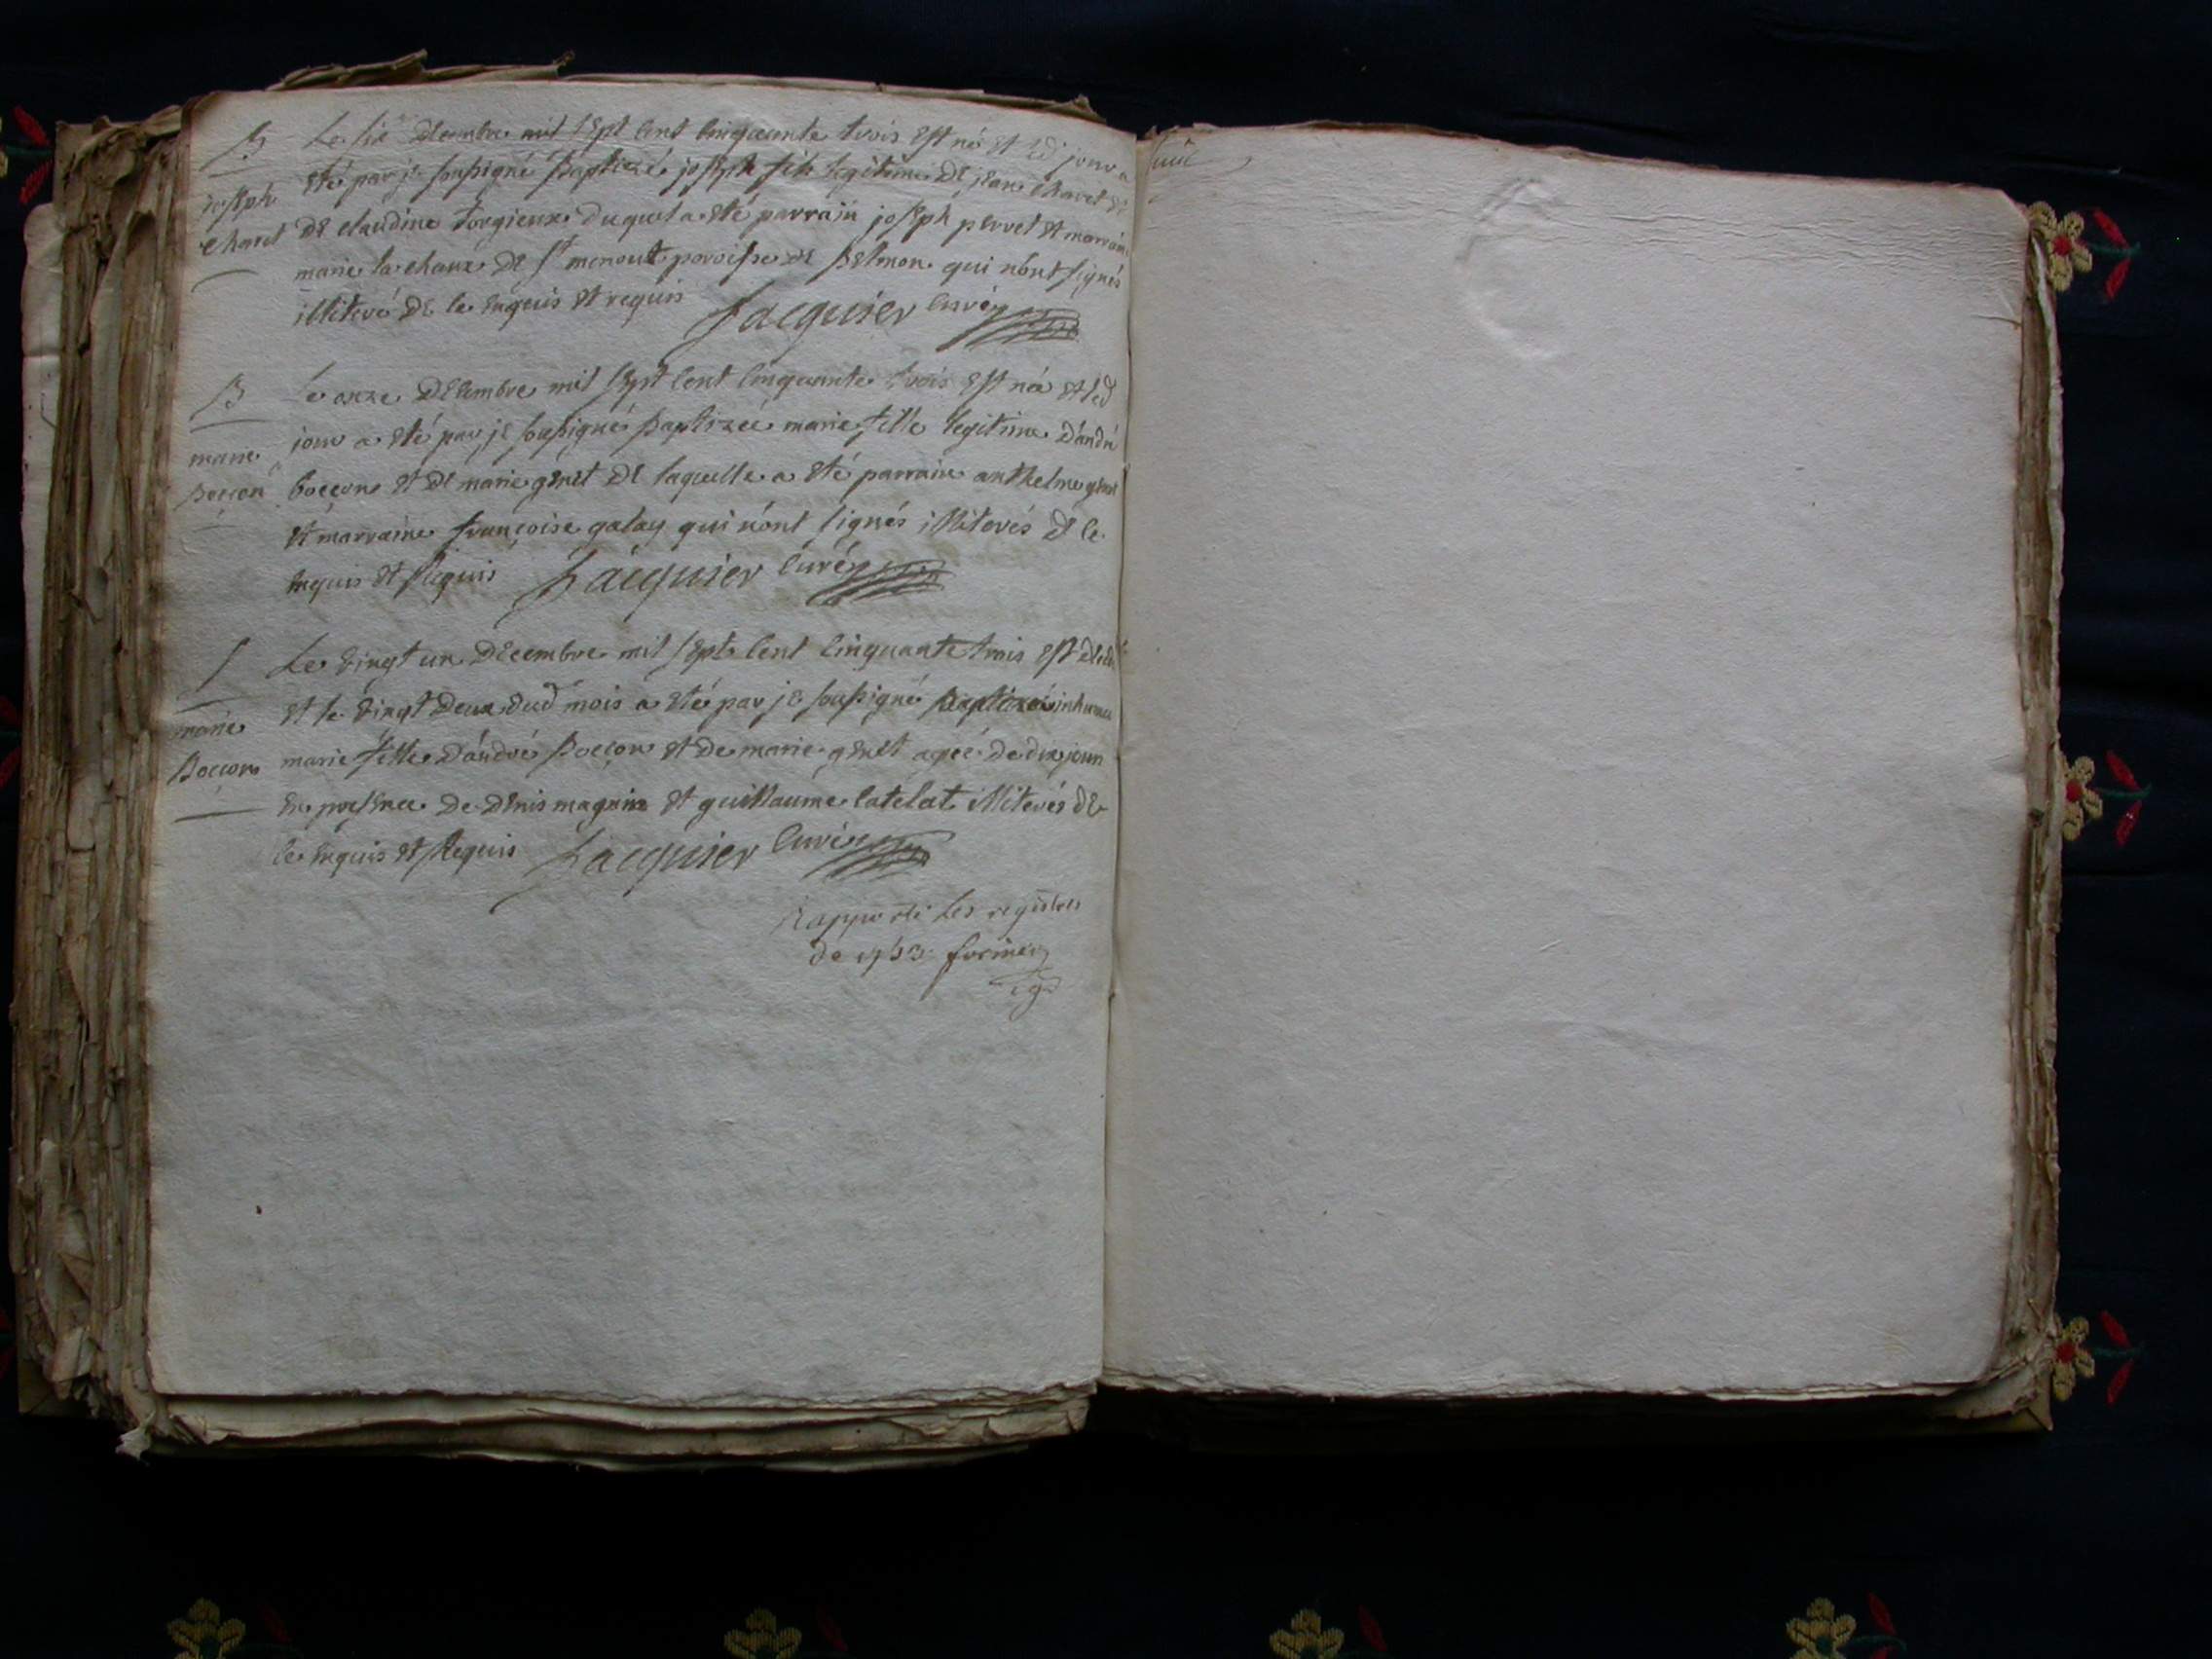 B
joseph
Charet
Le six decembre mil sept cent cinquante trois est né et led jour a
eté par je soussigné baptizé joseph fils legitime de jean Charet et
de claudine forgieux duquel a eté parrain joseph pervet et marraine
marie la chaux de st menout paroisse de belmon qui n'ont signés
illiteré de ce enquis et requis Jacquier curé
B
marie
boccon
Le onze decembre mil sept cent cinquante trois est née et led
jour a eté par je soussigné baptizeé marie fille legitime d'andré
boccon et de marie genet de laquelle a eté parrain anthelme genet
et marraine françoise galay qui n'ont signés illiterés de ce
enquis et requis Jacquier curé
S
marie
boccon
Le vingt un decembre mil sept cent cinquante trois est decedé
et le vingt deux dud mois a eté par je soussigné baptizeé inhumeé
marie fille d'andré boccon et de marie genet ageé de dix jours
en presence de denis magnin et guillaume catelat illiterés de
ce enquis et requis Jacquier curé
Rapporté les registres
de 1753